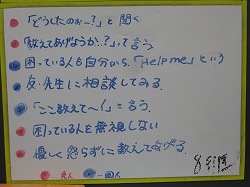 「どうしたのぉ〜?」と聞く
「教えてあげようか?」って言う
困っている人も自分から、「Help me」という
友・先生に相談してみる
「ここ教えて〜!」と言う
困っている人を無視しない
優しく怒らずに教えてあげる